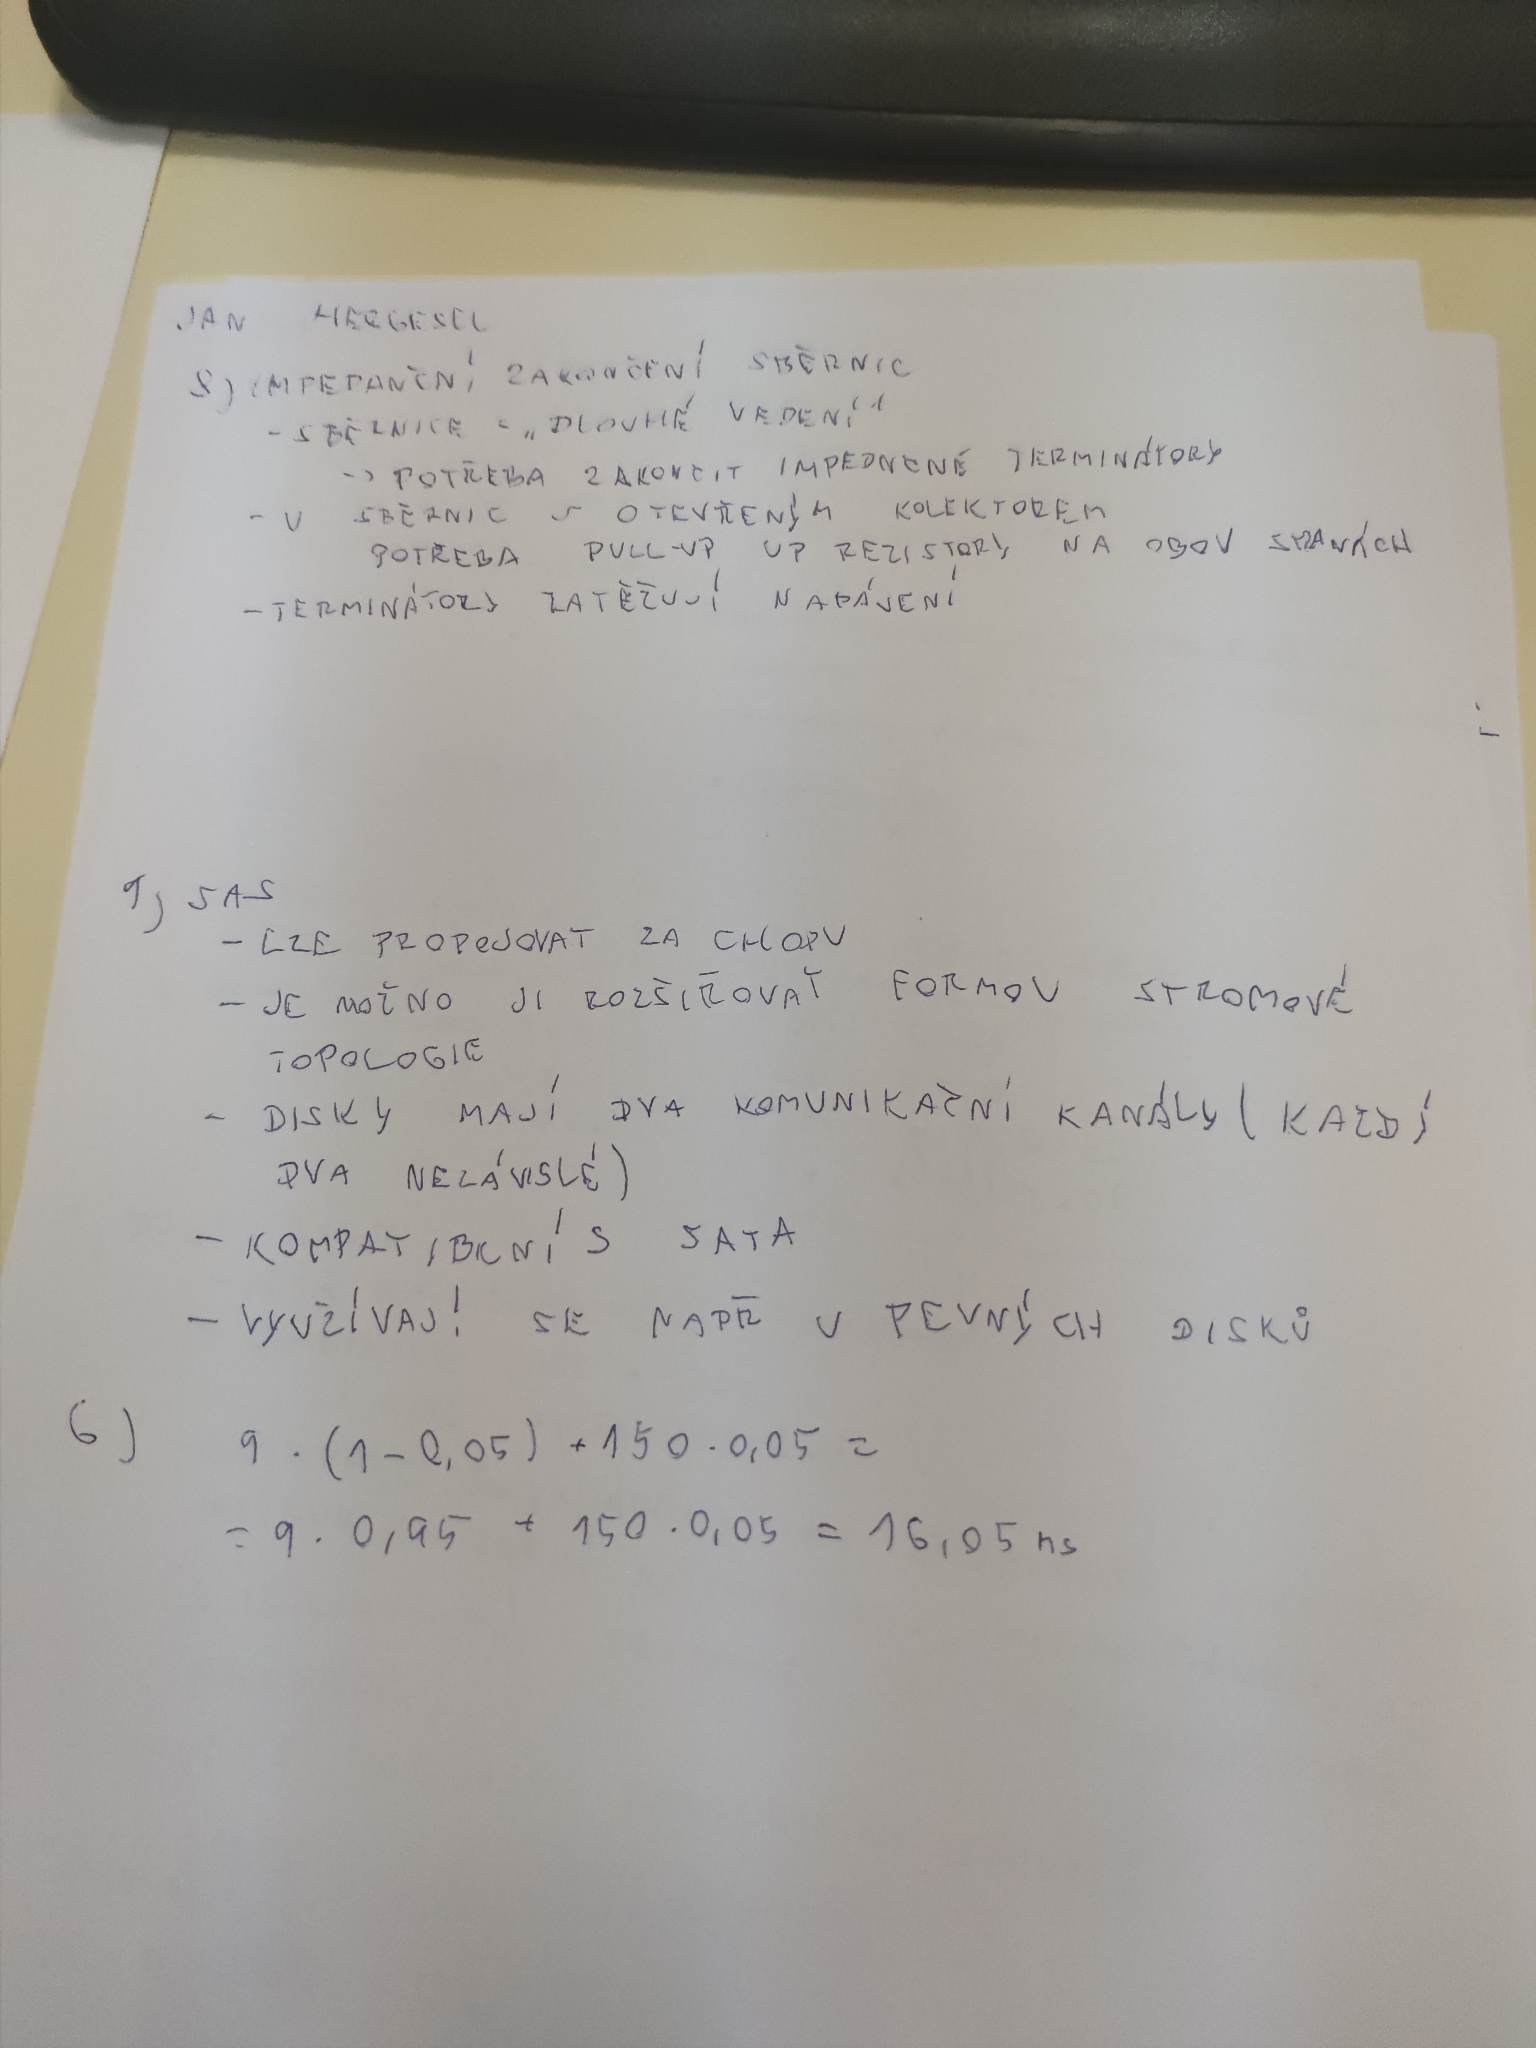 JAN HERGESEL
8) IMPEDANČNÍ ZAKONČENÍ SBĚRNIC
- SBĚRNICE = „DLOUHÉ VEDENÍ"
-> POTŘEBA ZAKONCIT IMPEDNČNÉ TERMINÁTORY
- U SBĚRNIC S OTEVŘENÝM KOLEKTOREM
POTŘEBA PULL-UP UP REZISTORY NA OBOU STRANÁCH
- TERMINÁTORY ZATĚŽUJÍ NAPÁJENÍ
9) SAS
- LZE PROPOJOVAT ZA CHODU
- JE MOŽNO JI ROZŠIŘOVAT FORMOU STROMOVÉ
TOPOLOGIE
- DISKY MAJÍ DVA KOMUNIKAČNÍ KANÁLY (KAZDÍ
DVA NEZÁVISLÉ)
- KOMPATIBLNÍ S SATA
- VYUŽÍVAJÍ SE NAPŘ U PEVNÝCH DISKŮ
6) 9 · (1 - 0,05) + 150 · 0,05 =
= 9 · 0,95 + 150 · 0,05 = 16,05 ns